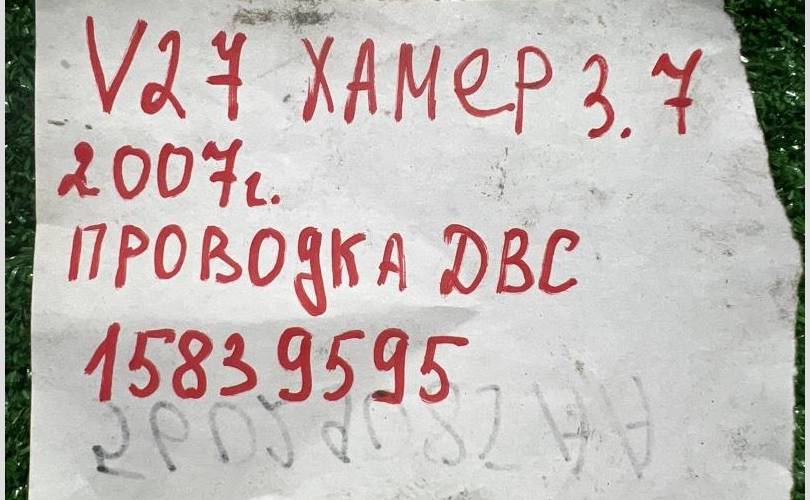 V27 ХАМеР 3.7
2007г.
ПРОВОдКА ДВС
15839595